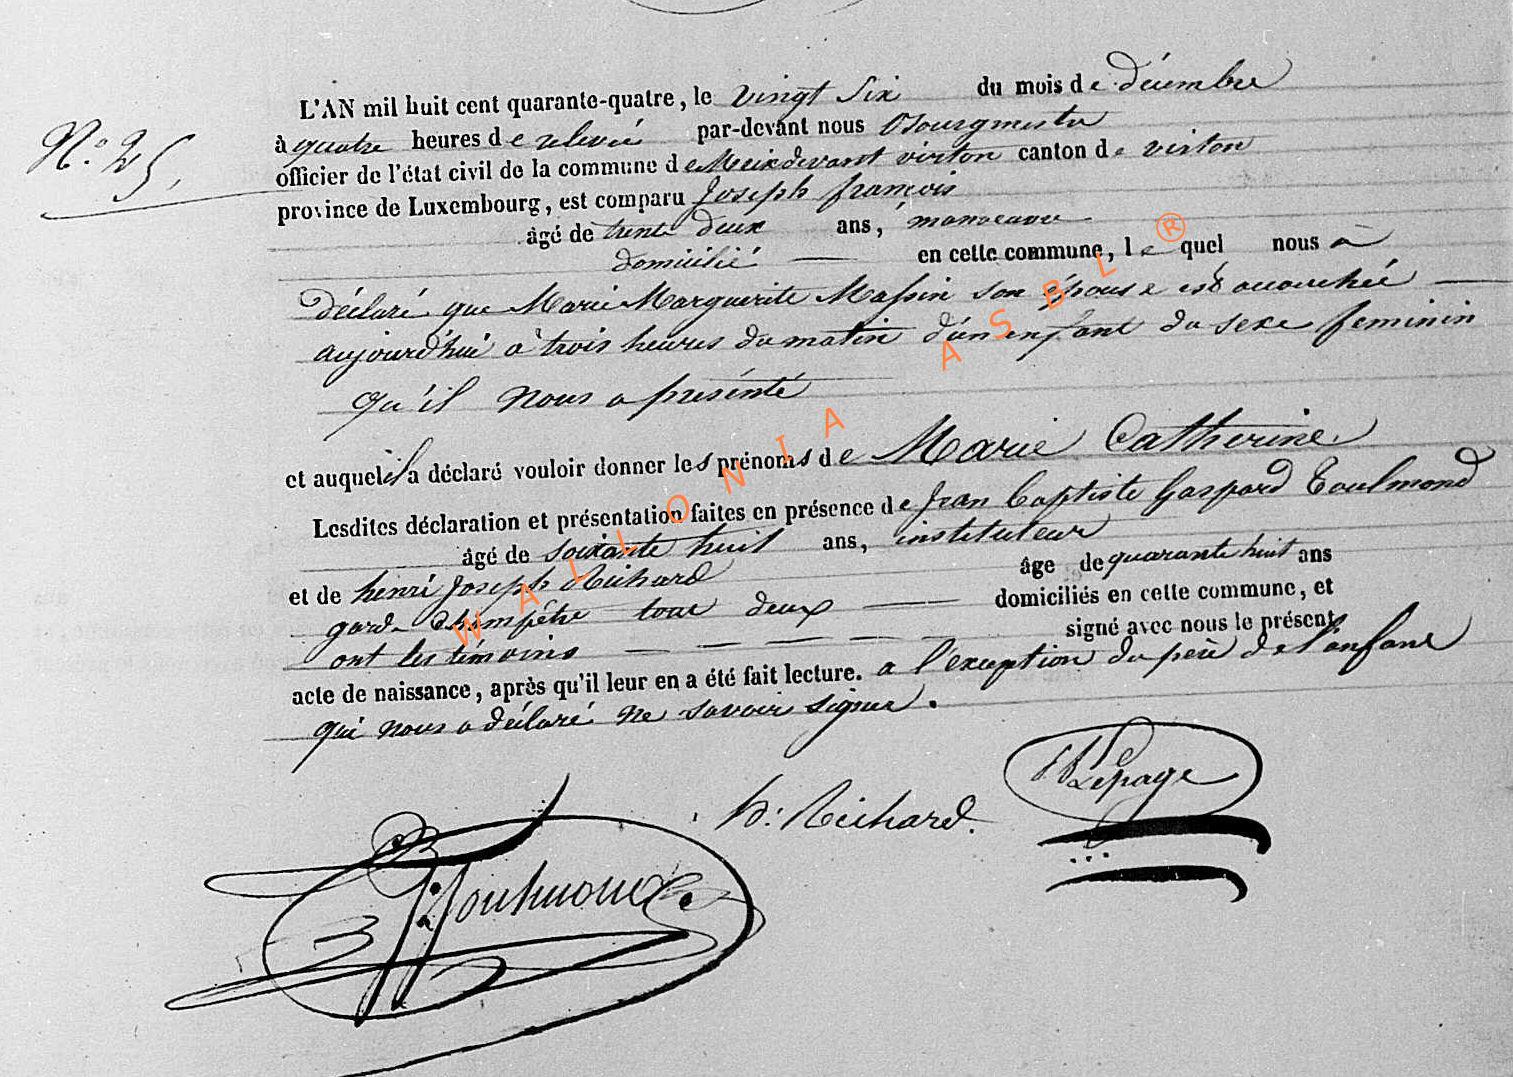 N.° 25,
L'AN mil huit cent quarante-quatre, le vingt six du mois de décembre
à quatre heures de relevée par-devant nous Bourgmestre
officier de l'état civil de la commune de Meixdevant virton canton de virton
province de Luxembourg, est comparu Joseph françois
âgé de trente deux ans, manoeuvre
domicilié en cette commune, le quel nous à
déclaré que Marie Marguerite Massin son épouse est accouchée
aujourd'hui à trois heures du matin d'un enfant du sexe feminin
qu'il nous a présenté
et auquel il a déclaré vouloir donner les prénoms de Marie Catherine
Lesdites déclaration et présentation faites en présence de Jean baptiste Gaspard Toulmond
âgé de soixante huit ans, instituteur
et de henri Joseph Richard âge de quarante huit ans
garde champêtre tous deux domiciliés en cette commune, et
ont les témoins signé avec nous le présent
acte de naissance, après qu'il leur en a été fait lecture. a l'exception du père de l'enfant
qui nous a déclaré ne savoir signer.
Lepage
h: Richard.
Toulmond
WALLONIA ASBL ®